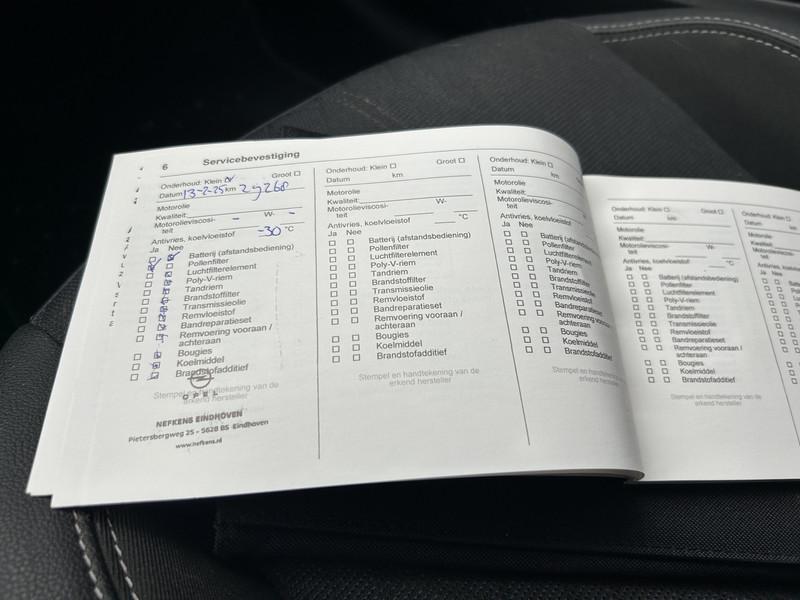 6 Servicebevestiging
Onderhoud: Klein
Datum 13-2-25 km 29268
Motorolie
Kwaliteit:
Motorolieviscosi- - W- -
teit
Antivries, koelvloeistof -30 °C
Ja Nee
Batterij (afstandsbediening)
Pollenfilter
Luchtfilterelement
Poly-V-riem
Tandriem
Brandstoffilter
Transmissieolie
Remvloeistof
Bandreparatieset
Remvoering vooraan /
achteraan
Bougies
Koelmiddel
Brandstofadditief
Stempel en handtekening van de
erkend hersteller
OPEL
NEFKENS EINDHOVEN
Pietersbergweg 25 - 5628 BS Eindhoven
www.nefkens.nl
Onderhoud: Klein Groot
Datum km
Motorolie
Kwaliteit:
Motorolieviscosi- W-
teit
Antivries, koelvloeistof °C
Ja Nee
Batterij (afstandsbediening)
Pollenfilter
Luchtfilterelement
Poly-V-riem
Tandriem
Brandstoffilter
Transmissieolie
Remvloeistof
Bandreparatieset
Remvoering vooraan /
achteraan
Bougies
Koelmiddel
Brandstofadditief
Stempel en handtekening van de
erkend hersteller
Groot
Onderhoud: Klein
Datum km
Motorolie
Kwaliteit:
Motorolieviscosi-
teit
Antivries, koelvloeistof
Ja Nee
Batterij (afstands
Pollenfilter
Luchtfilterelement
Poly-V-riem
Tandriem
Brandstoffilter
Transmissieolie
Remvloeistof
Bandreparatieset
Remvoering vooraan
achteraan
Bougies
Koelmiddel
Brandstofadditief
Stempel en handtekening
erkend herst
Onderhoud: Klein Groot
Datum km
Motorolie
Kwaliteit:
Motorolieviscosi- W-
teit
Antivries, koelvloeistof °C
Ja Nee
Batterij (afstandsbediening)
Pollenfilter
Luchtfilterelement
Poly-V-riem
Tandriem
Brandstoffilter
Transmissieolie
Remvloeistof
Bandreparatieset
Remvoering vooraan /
achteraan
Bougies
Koelmiddel
Brandstofadditief
Stempel en handtekening van de
erkend hersteller
Onderhoud: Klein
Datum
Motorolie
Kwaliteit:
Motorolieviscosi-
teit
Antivries, koelvl
Ja Nee